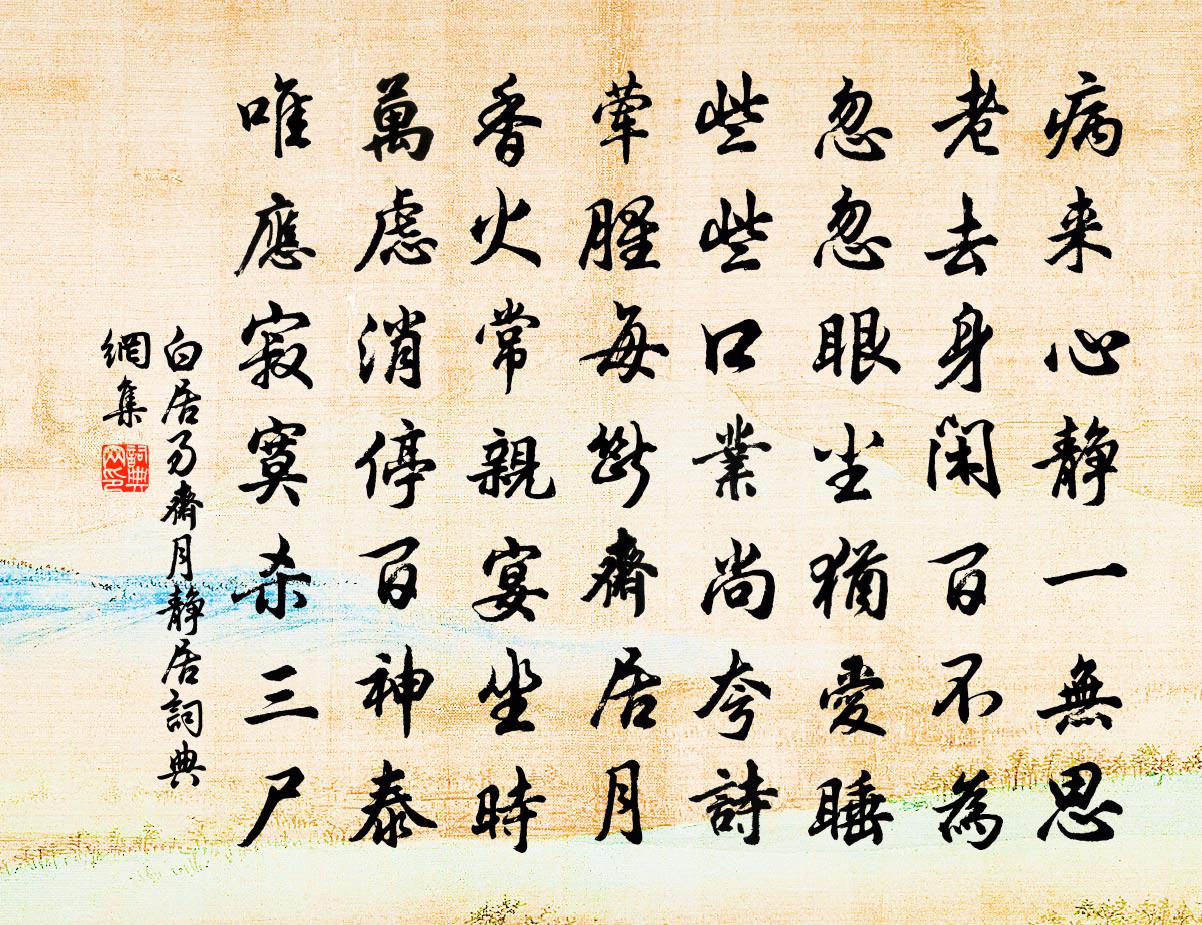 病来心静一無思
老去身闲百不為
忽忽眼尘猶愛睡
些些口業尚夸詩
荤腥每斷齋居月
香火常親宴坐時
萬慮消停百神泰
唯應寂寞杀三尸
白居易齋月静居詞典
網集
詞典
网印